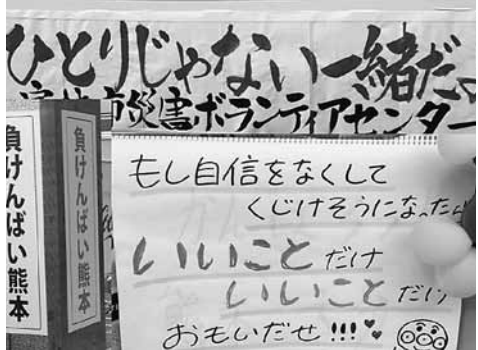 ひとりじゃない一緒だよ
市災害ボランティアセンター
負けんばい熊本
負けんばい熊本
もし自信をなくして
くじけそうになったら
いいことだけ
いいことだけ
おもいだせ!!!